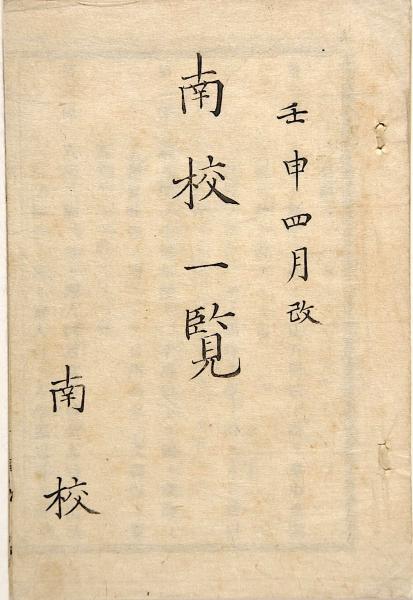 壬申四月改
南校一覧
南校